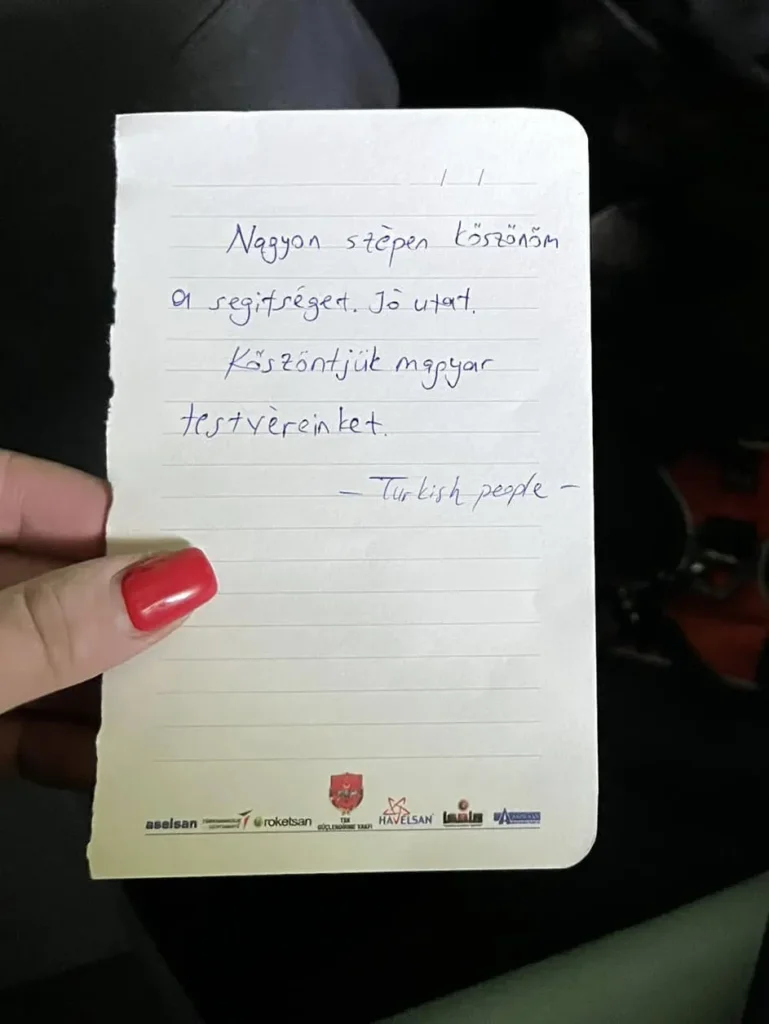 / /
Nagyon szèpen kőszőnőm
a segitséget. Jò utat.
Kőszőntjük magyar
testvèreinket.
- Turkish people -
aselsan roketsan TSK GÜÇLENDİRME VAKFI HAVELSAN